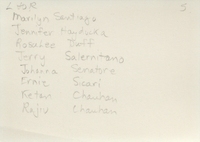 LYDR S
Marilyn Santiago
Jennifer
Rosalee Hoff
Jerry Salernitano
Johanna Senatore
Ernie Sicari
Ketan Chauhan
Rajiv Chauhan